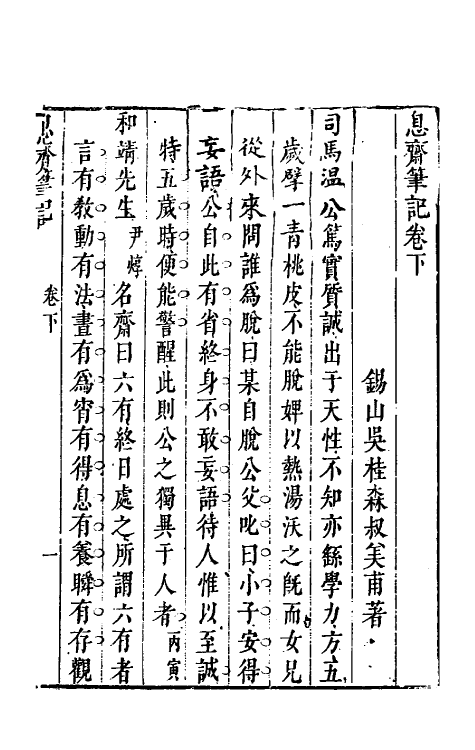 息齋筆記卷下
錫山吳桂森叔美甫著
司馬溫公篤實質誠出于天性不知亦繇學力方五
歲擘一青桃皮不能脫婢以熱湯沃之旣而女兄
從外來問誰爲脫曰某自脫公父叱曰小子安得
妄語公自此有省終身不敢妄語待人惟以至誠
特五歲時便能警醒此則公之獨異于人者丙寅
和靖先生尹焞名齋曰六有終日處之所謂六有者
言有敎動有法晝有爲宵有得息有養瞬有存觀
息齋筆記
卷下
一